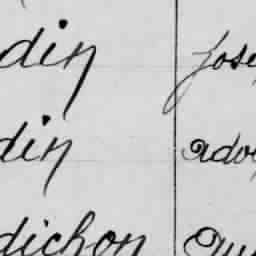 din Jose
din Adol
dichon Au